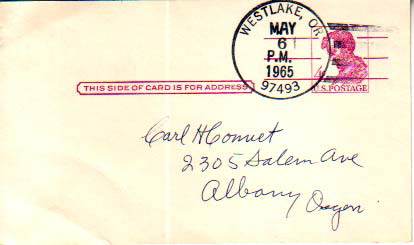 WESTLAKE, OR
MAY
6
P.M.
1965
97493
4¢
U.S. POSTAGE
THIS SIDE OF CARD IS FOR ADDRESS
Carl H
2305 Salem Ave
Albany Oregon